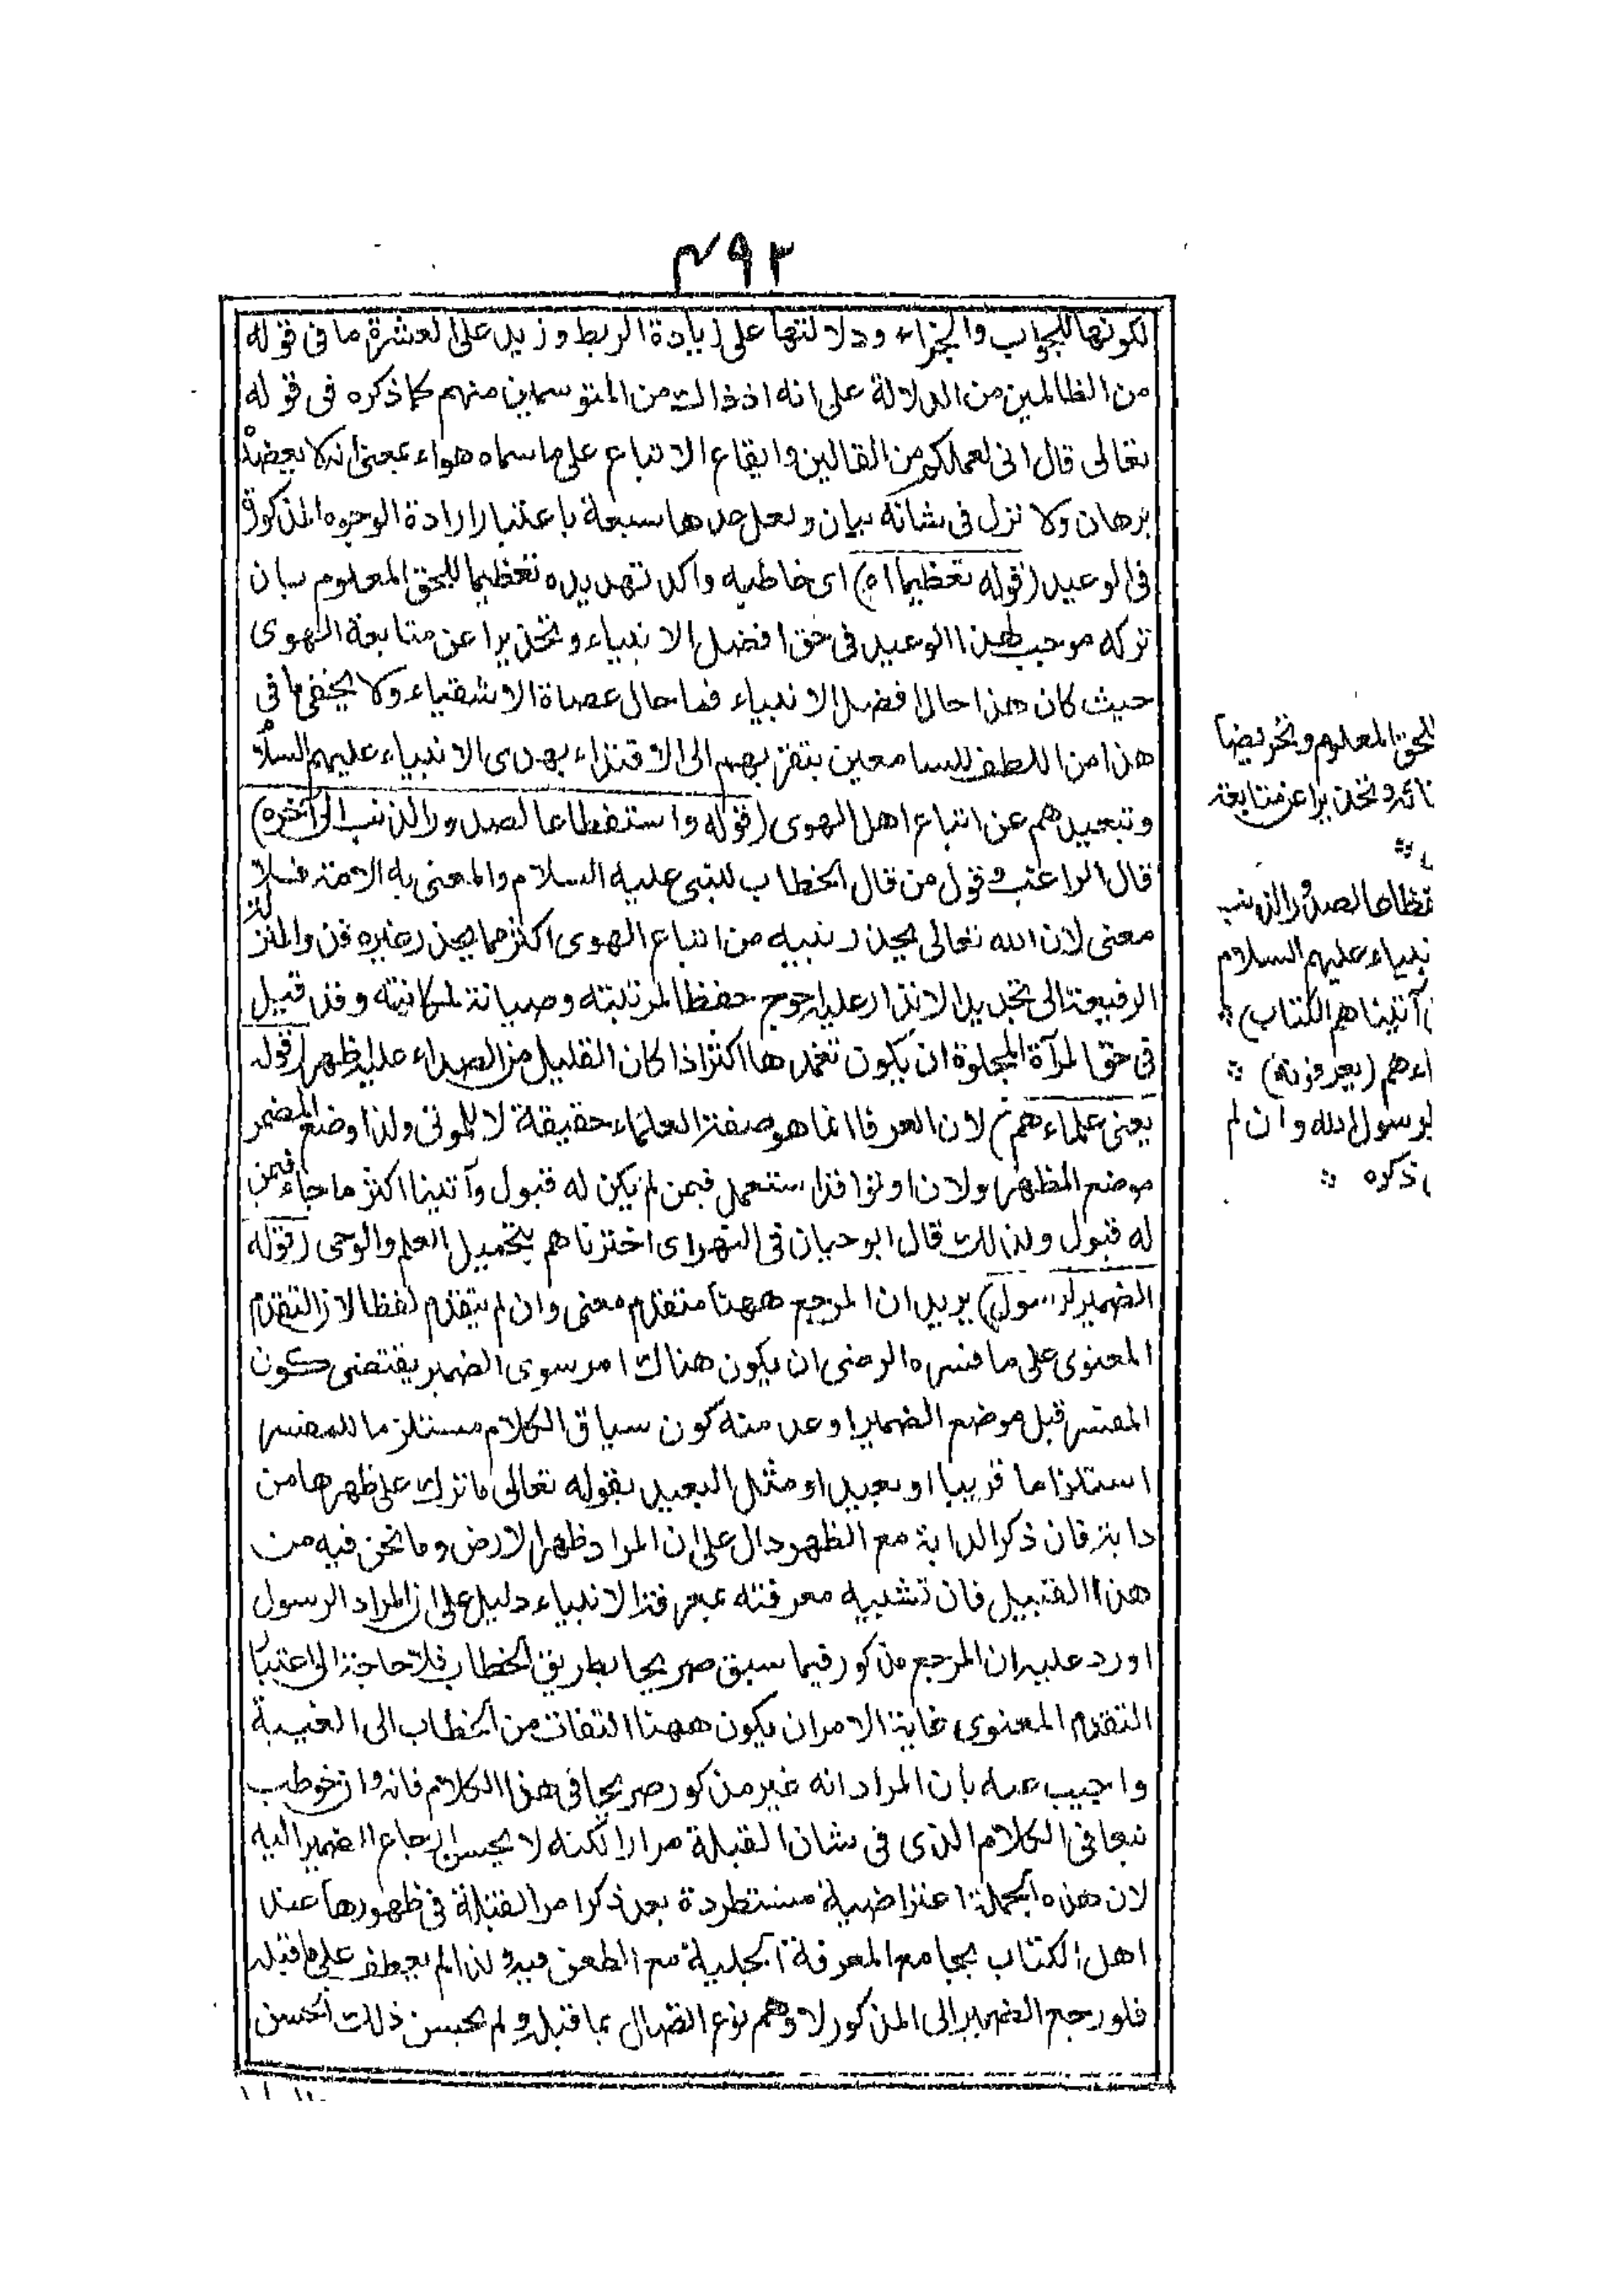 ٣٩٣
لكونها للجواب والجزاء ودلالتها على زيادة الربط وزيد على العشرة ما فى قوله
من الظالمين من الدلالة على انه اذ ذالك من المتوسمين منهم كما ذكره فى قوله
تعالى قال انى لعملكم من القالين وايقاع الاتباع على ما سماه هواء بمعنى انه لا يعضده
برهان ولا نزل فى شانه بيان ولعل عدها سبعة باعتبار ارادة الوجوه المذكورة
فى الوعيد (قوله تعظيما اه) اى خاطبه واكد تهديده تعظيما للحق المعلوم ببان
تركه موجب لهذا الوعيد فى حق افضل الانبياء وتحذيرا عن متابعة الهوى
حيث كان هذا حال افضل الانبياء فما حال عصاة الاشقياء ولا يخفى ما فى
هذا من اللطف للسامعين بتقريبهم الى الاقتداء بهدى الانبياء عليهم السلام
وتبعيدهم عن اتباع اهل الهوى (قوله واستفظاعا لصدور الذنب الى آخره)
قال الراغب قول من قال الخطاب للنبى عليه السلام والمعنى به الامة فلا
معنى لان الله تعالى يحذر نبيه من اتباع الهوى اكثر مما يحذر غيره فذو المنزلة
الرفيعة الى تجديد الانذار عليه احوج حفظا لمرتبته وصيانة لمكانته وقد قيل
فى حق المرآة المجلوة ان يكون تعهدها اكثر اذا كان القليل من الصداء عليه اظهر (قوله
يعنى علماءهم) لان العرفا انما هو صفة العلماء حقيقة لا للموتى ولذا وضع المضمر
موضع المظهر ولان اوتوا قد استعمل فيمن لم يكن له قبول وآتينا اكثر ما جاء فيمن
له قبول ولذلك قال ابو حيان فى النهر اى اخترناهم بتحميل العلم والوحى (قوله
الضمير لرسول) يريد ان المرجع ههنا متقدم معنى وان لم يتقدم لفظا لان التقدم
المعنوى على ما فسره الرضى ان يكون هناك امر سوى الضمير يقتضى كون
المفسر قبل موضع الضمير وعد منه كون سياق الكلام مستلزما للمفسر
استلزاما قريبا او بعيدا ومثل البعيد بقوله تعالى ما ترك على ظهرها من
دابة فان ذكر الدابة مع الظهر دال على ان المراد ظهر الارض وما نحن فيه من
هذا القبيل فان تشبيه معرفته بمعرفة الانبياء دليل على ان المراد الرسول
اورد عليه ان المرجع مذكور فيما سبق صريحا بطريق الخطاب فلا حاجة الى اعتبار
التقدم المعنوى غاية الامر ان يكون ههنا التفات من الخطاب الى الغيبة
واجيب عنه بان المراد انه غير مذكور صريحا فى هذا الكلام فانه وان خوطب
تبعا فى الكلام الذى فى شان القبلة مرارا لكنه لا يحسن ارجاع الضمير اليه
لان هذه الجملة اعتراضية مستطردة بعد ذكر امر القبلة فى ظهورها عند
اهل الكتاب بجامع المعرفة الجلية مع الطعن فيه ولذا لم يعطف على ما قبله
فلو رجع الضمير الى المذكور لاوهم نوع اتصال بما قبله ولم يحسن ذلك الحسن
للحق المعلوم وتحريضا
وتحذيرا عن متابعة
لصدور الذنب
عليهم السلام
آتيناهم الكتاب)
(يعرفونه)
لرسول الله وان لم
ذكره